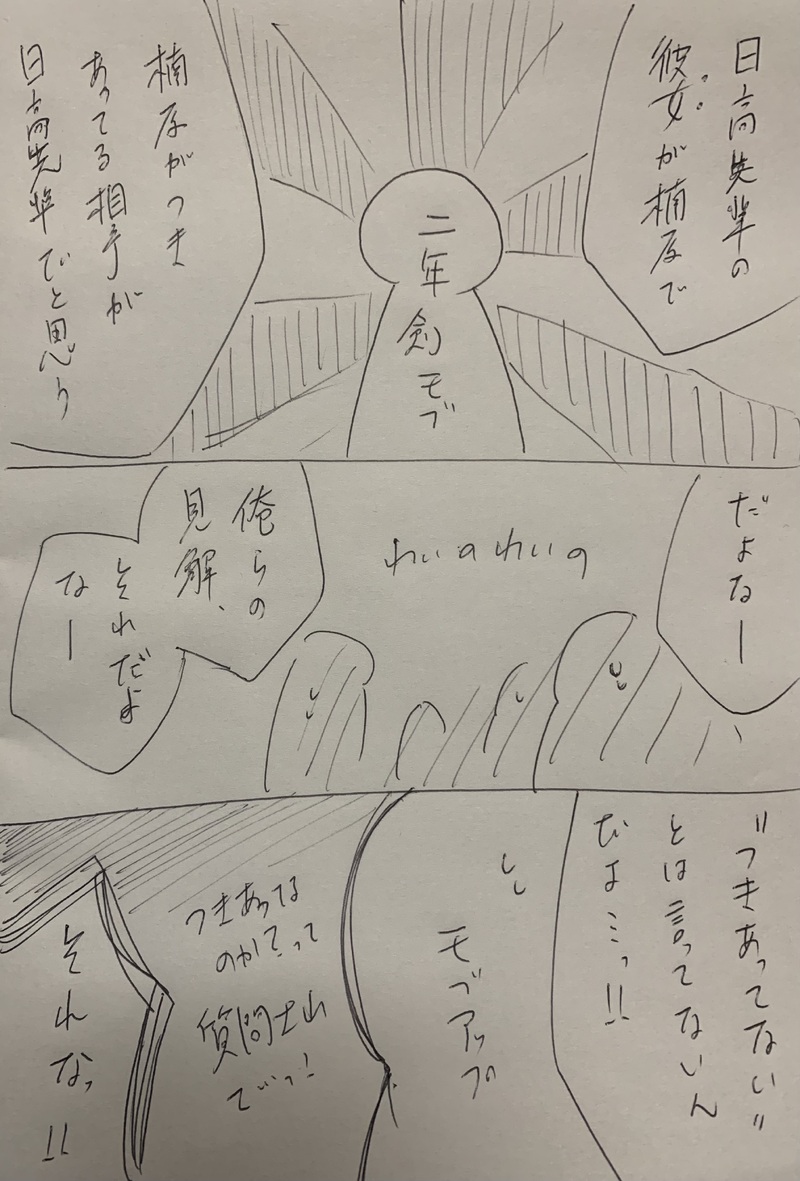 日高先輩の
彼女が楠原で
二年
剣モブ
楠原がつき
あってる相手が
日高先輩でと思う
だよなー
れいのれいの
俺らの
見解、
それだよ
なー
"つきあってない"
とは言ってないん
だよ…っ!!
モブアップ
つきあってる
のか?って
質問
でっ!
それなっ!!